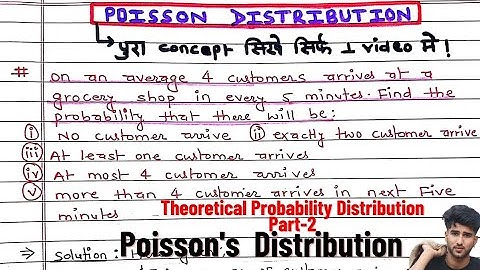 POISSON DISTRIBUTION
पुरा concept सिखे सिर्फ 1 video मे!
# On an average 4 customers arrives at a
grocery shop in every 5 minutes. Find the
probability that there will be:
(i) No customer arrive (ii) exactly two customer arrive
(iii) At least one customer arrives
(iv) At most 4 customer arrives
(v) more than 4 customer arrives in next Five
minutes
Theoretical Probability Distribution
Part-2
Poisson's Distribution
⇒ Solution: